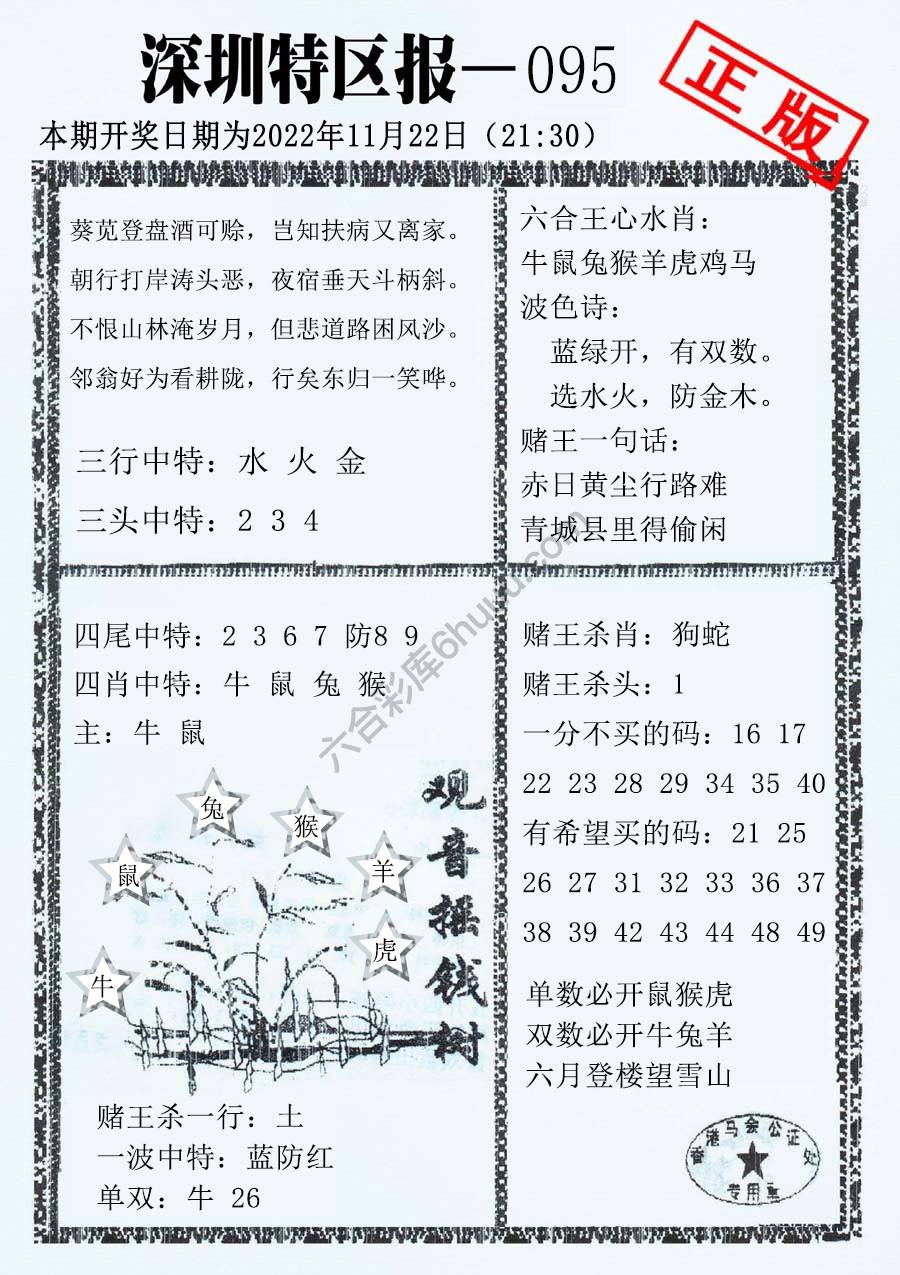 深圳特区报—095
正版
本期开奖日期为2022年11月22日（21:30）
葵苋登盘酒可赊，岂知扶病又离家。
朝行打岸涛头恶，夜宿垂天斗柄斜。
不恨山林淹岁月，但悲道路困风沙。
邻翁好为看耕陇，行矣东归一笑哗。
三行中特：水 火 金
三头中特：2 3 4
六合王心水肖：
牛鼠兔猴羊虎鸡马
波色诗：
蓝绿开，有双数。
选水火，防金木。
赌王一句话：
赤日黄尘行路难
青城县里得偷闲
四尾中特：2 3 6 7 防8 9
四肖中特：牛 鼠 兔 猴
主：牛 鼠
兔
猴
鼠
羊
虎
牛
观音摇钱树
赌王杀一行：土
一波中特：蓝防红
单双：牛 26
赌王杀肖：狗蛇
赌王杀头：1
一分不买的码：16 17
22 23 28 29 34 35 40
有希望买的码：21 25
26 27 31 32 33 36 37
38 39 42 43 44 48 49
单数必开鼠猴虎
双数必开牛兔羊
六月登楼望雪山
香港马会公证处
专用章
六合彩库6huuu.com